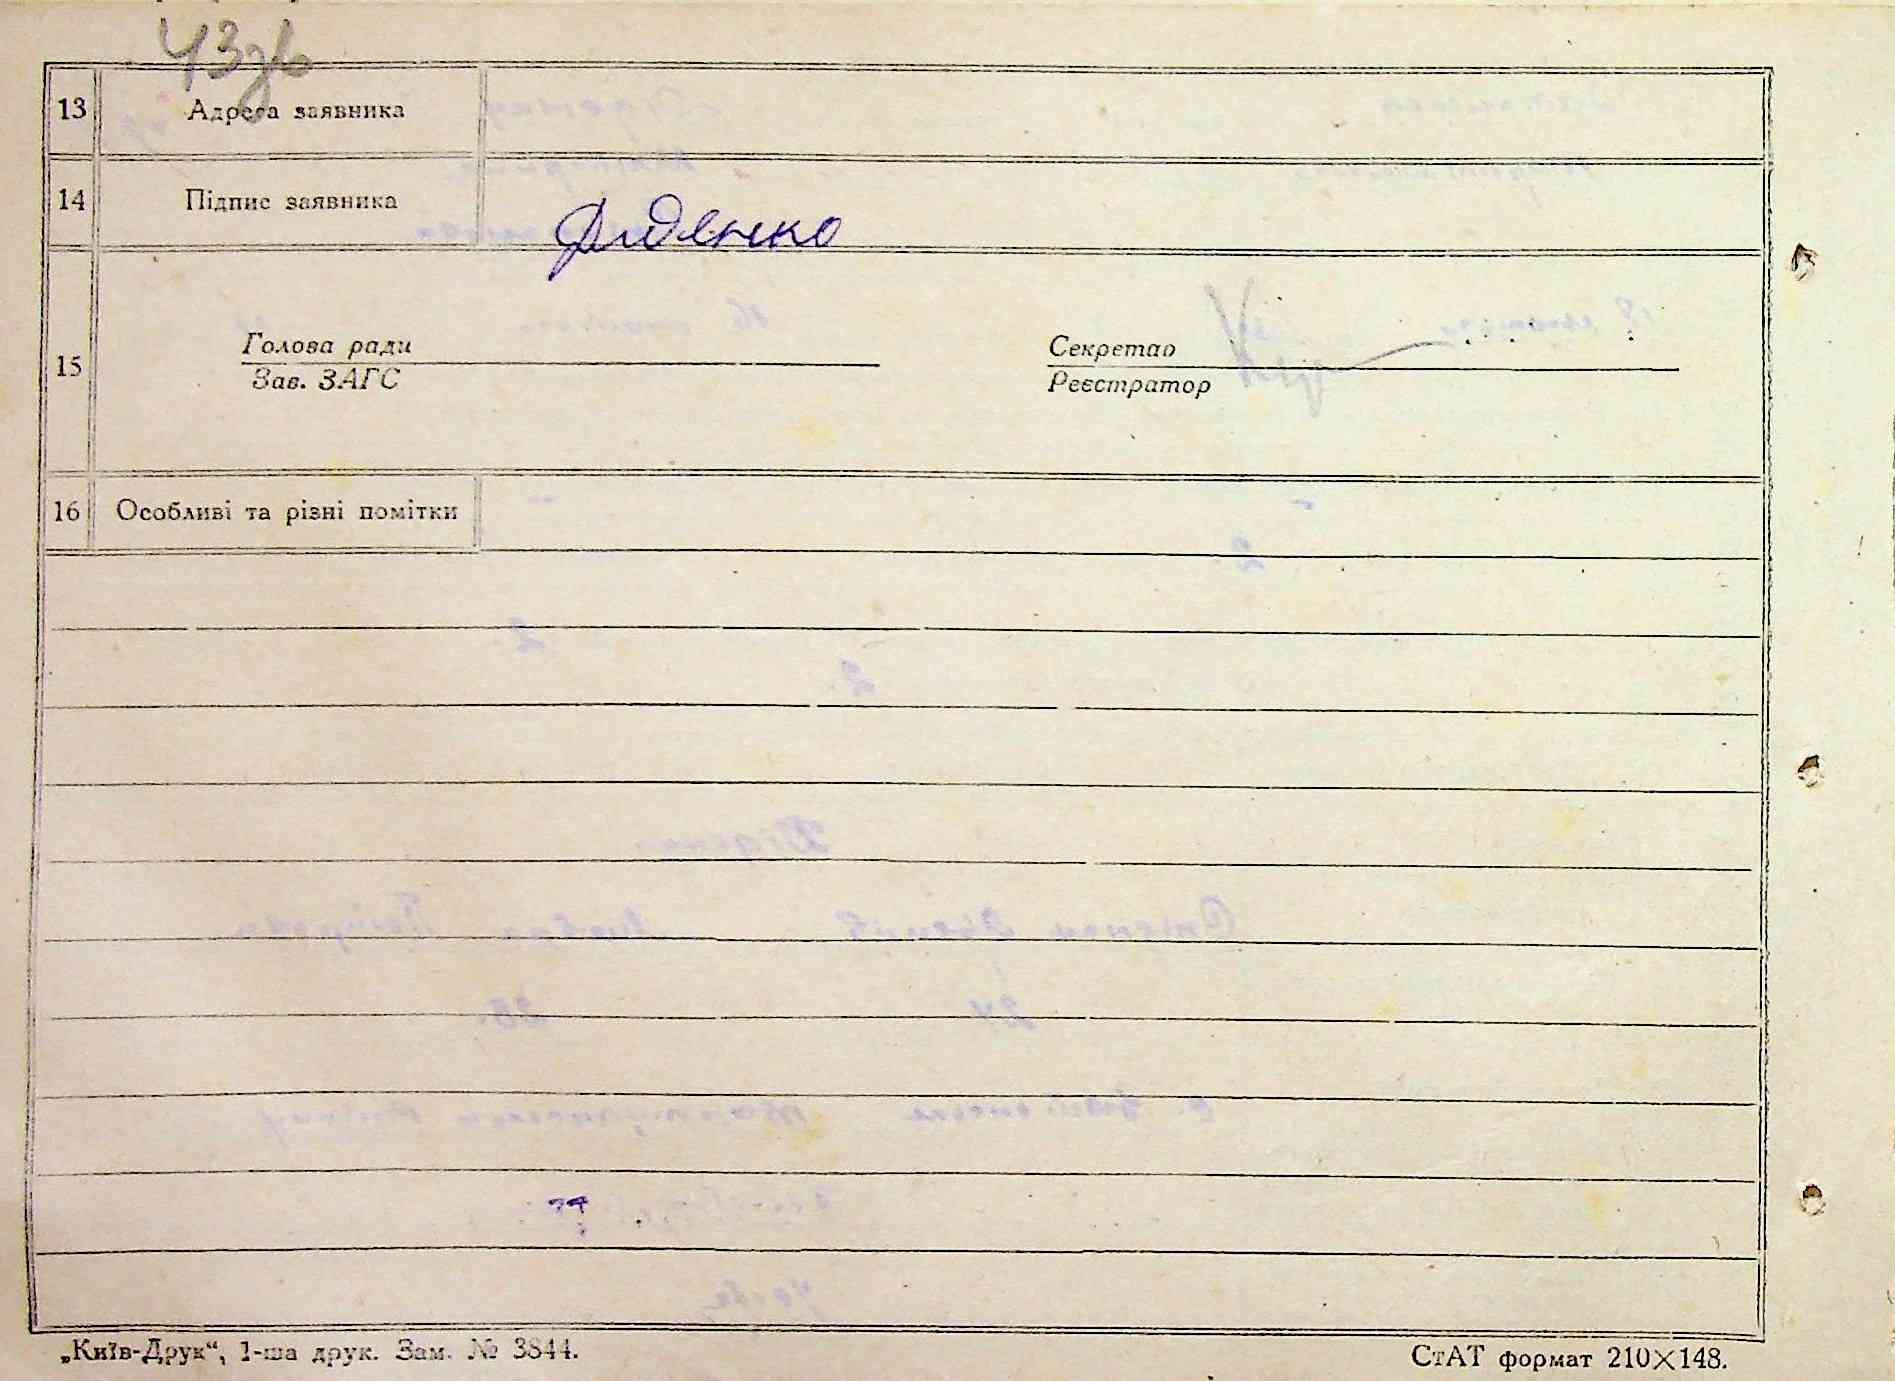 43зв
13 Адреса заявника
14 Підпис заявника Диденко
15 Голова ради Секретар
Зав. ЗАГС Реєстратор
16 Особливі та різні помітки
„Київ-Друк“, 1-ша друк. Зам. № 3844. СтАТ формат 210×148.